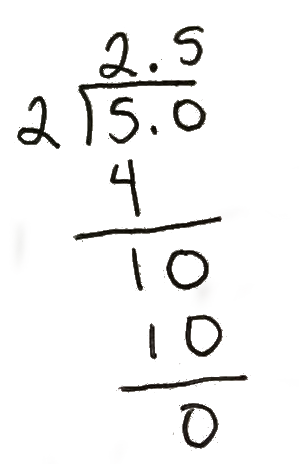 2.5
2 5.0
4
10
10
0